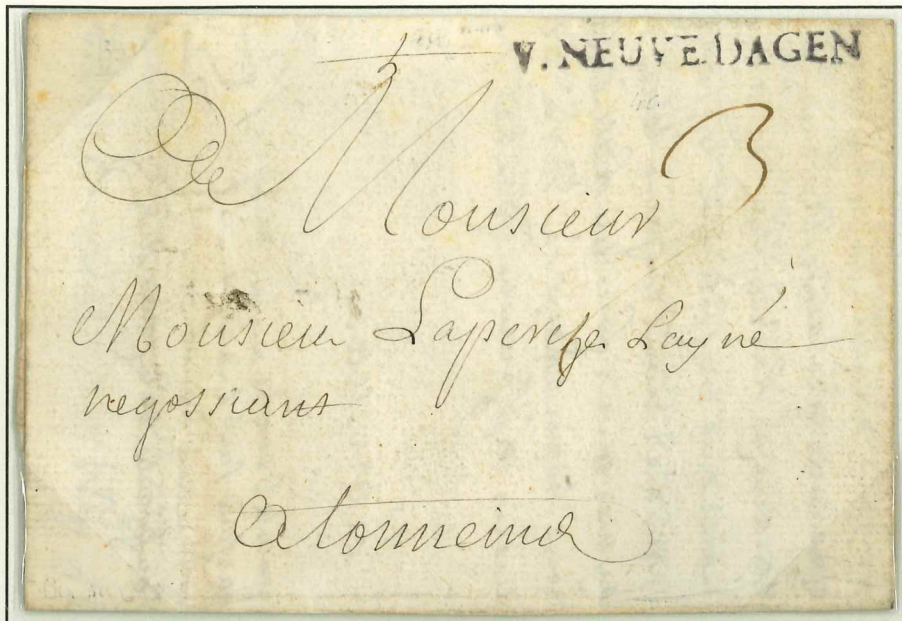 V. NEUVE DAGEN
3
A Monsieur
Monsieur Laperche Layné
negossiant
A tonneins